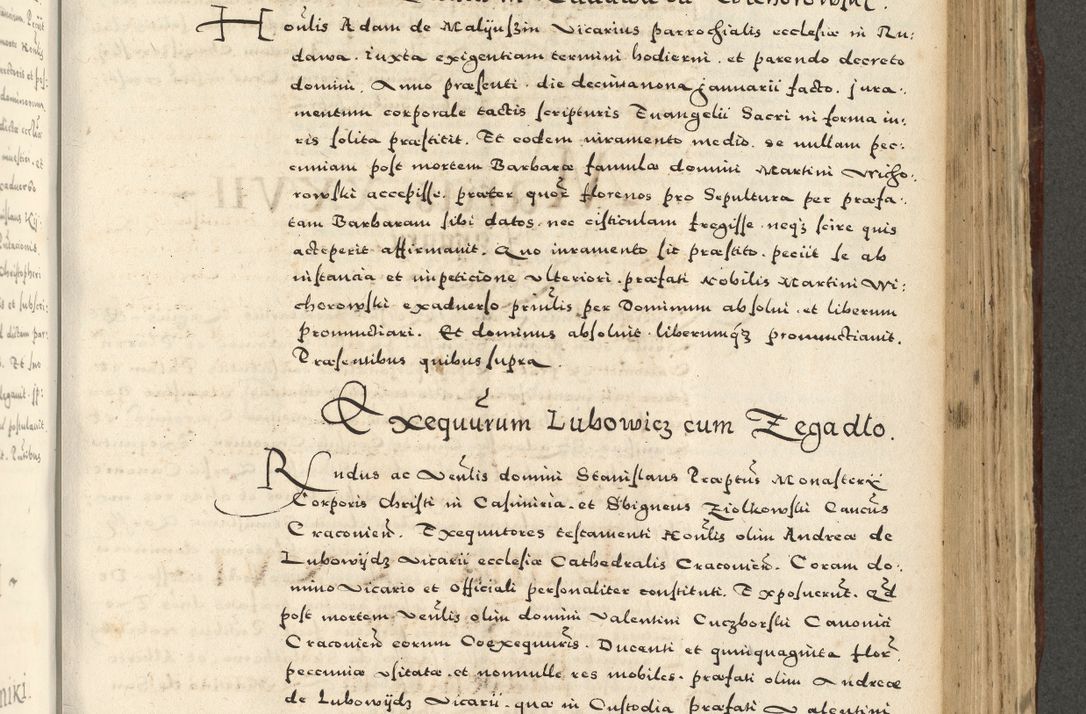 Honlis Adam de Malijuszin Vicarius parrochialis ecclesiæ in Ru:
dawa. iuxta exigentiam termini hodierni. et parendo decreto
domini. Anno præsenti. die decimanona januarii facto. jura:
mentum corporale tactis scripturis Euangelii Sacri in forma iu:
ris solita præstitit. Et eodem iuramento medio. se nullam pec:
cuniam post mortem Barbaræ famulæ domini Martini Wicho:
rowski accepisse. præter quor florenos pro Sepultura per præfa:
tam Barbaram sibi datos. nec cisticulam fregisse. neqz scire quis
acceperit affirmauit. Quo iuramento sic præstito. peciit se ab
instancia et impeticione vlteriori. præfati Nobilis Martini Wi:
chorowski exaduerso priulis per Dominum absolui. et liberum
pronunctiari. Et dominus absoluit. liberumqz pronunctiauit.
Præsentibus quibus supra.
Exequurum Lubowicz cum Zegadlo.
Rndus ac Venlis domini Stanislaus Præptus Monasterii
Corporis Christi in Casimiria. et Sbigneus Ziolkowski Cancus
Cracouien. Exequutores testamenti Honlis olim Andreæ de
Lubowijdz Vicarii ecclesiæ Cathedralis Cracouien. Coram do:
mino Vicario et Officiali personaliter constituti. Exposuerut. Qd
post mortem Venlis olim domini Valentini Cuczborski Canonici
Cracouien eorum Coexequuris. Ducenti et quinquaginta flor.
peccuniæ vsitatæ. et nonnulle res mobiles. præfati olim Andreæ
de Lubowijdz Vicarii. quæ in Custodia præfati Valentini